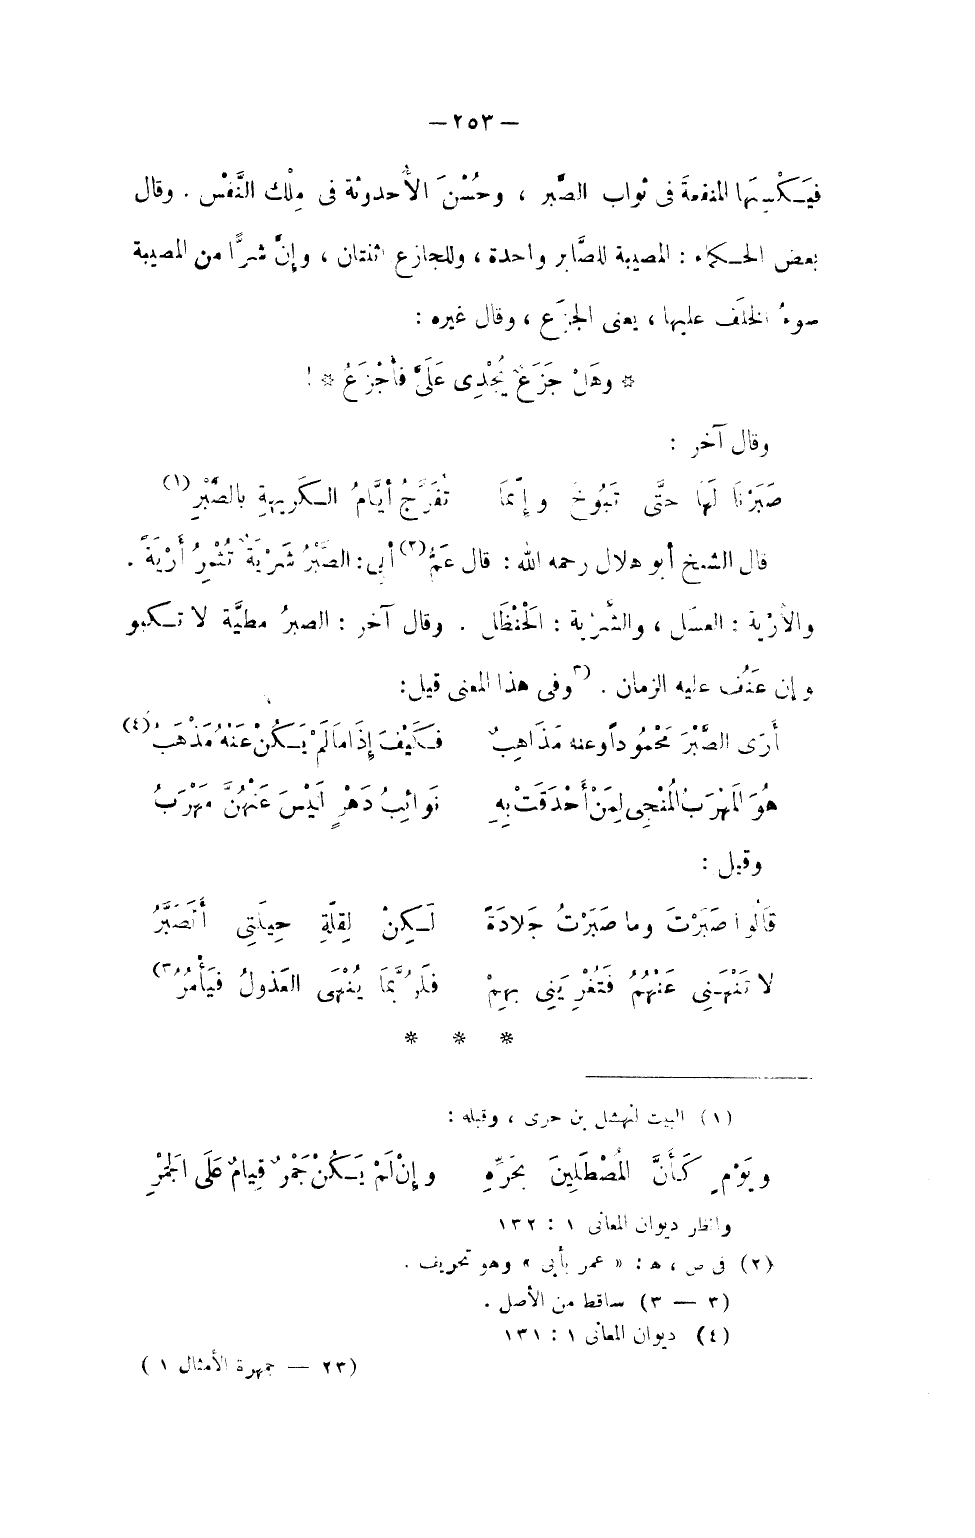 — ٢٥٣ —
فيَكْسِبها المنفعةَ فى ثواب الصَّبر ، وحُسْنَ الأُحدوثة فى مِلْك النَّفْس . وقال
بعض الحكماء : المصيبة للصَّابر واحدة ، وللجازع اثنتان ، وإنَّ شرًّا من المصيبة
سوءُ الخلَف عليها ، يعنى الجزَع ، وقال غيره :
* وهَلْ جَزَعٌ يُجْدِى عَلَىَّ فأَجْزَعُ * !
وقال آخر :
صَبَرْنَا لَهَا حتَّى تَبُوخَ وإنَّما تُفَرَّجُ أيَّامُ الكَرِيهةِ بالصَّبْرِ (١)
قال الشيخ أبو هلال رحمه الله : قال عَمُّ (٢) أبى : الصَّبْرُ شَرْيَةٌ تُثْمِرُ أَرْيَةً .
والأرْية : العسَل ، والشَّرْية : الحَنْظَل . وقال آخر : الصبرُ مطيَّة لا تكبو
وإن عَنُف عليه الزمان . (٣ وفى هذا المعنى قيل :
أَرَى الصَّبْرَ مَحْمُوداً وعنه مَذَاهِبٌ فكَيْفَ إذَا مَا لَمْ يَكُنْ عَنْهُ مَذْهَبُ (٤)
هُوَ المَهْرَبُ المُنْجِى لِمَنْ أَحْدَقَتْ بِهِ نَوائِبُ دَهْرٍ لَيْسَ عَنْهُنَّ مَهْرَبُ
وقيل :
قَالُوا صَبَرْتَ وما صَبَرْتُ جَلادَةً لَكِنْ لِقلَّةِ حِيلَتِى أَتَصَبَّرُ
لا تَنْهَنِى عَنْهُمْ فَتُغْرِيَنِى بهِمْ فلَرُبَّمَا يُنْهَى العَذولُ فيَأْمُرُ ٣)
* * *
(١) البيت لنهشل بن حرى ، وقبله :
ويَوْمٍ كَأَنَّ المُصْطَلِينَ بِحَرِّهِ وإنْ لَمْ يَكُنْ جَمْرٌ قِيامٌ عَلَى الجَمْرِ
وانظر ديوان المعانى ١ : ١٣٢
(٢) فى ص ، هـ : « عمر بأبى » وهو تحريف .
(٣ — ٣) ساقط من الأصل .
(٤) ديوان المعانى ١ : ١٣١
(٢٣ — جمهرة الأمثال ١ )